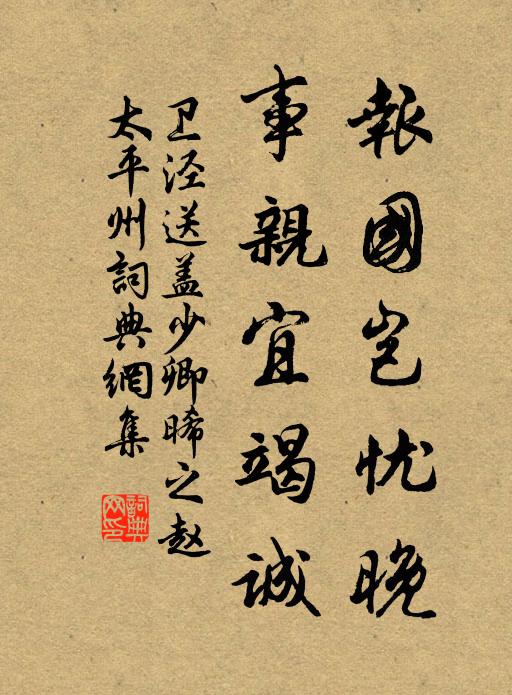 報國岂忧晚
事親宜竭诚
卫泾送盖少卿晞之赵
太平州詞典網集
詞典網印